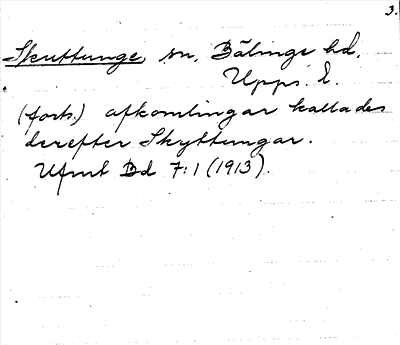 3.
Skuttunge sn, Bälinge hd,
Upps. l.
(forts.) afkomlingar kallades
derefter Skyttungar.
Ufmt Bd 7:1 (1913).